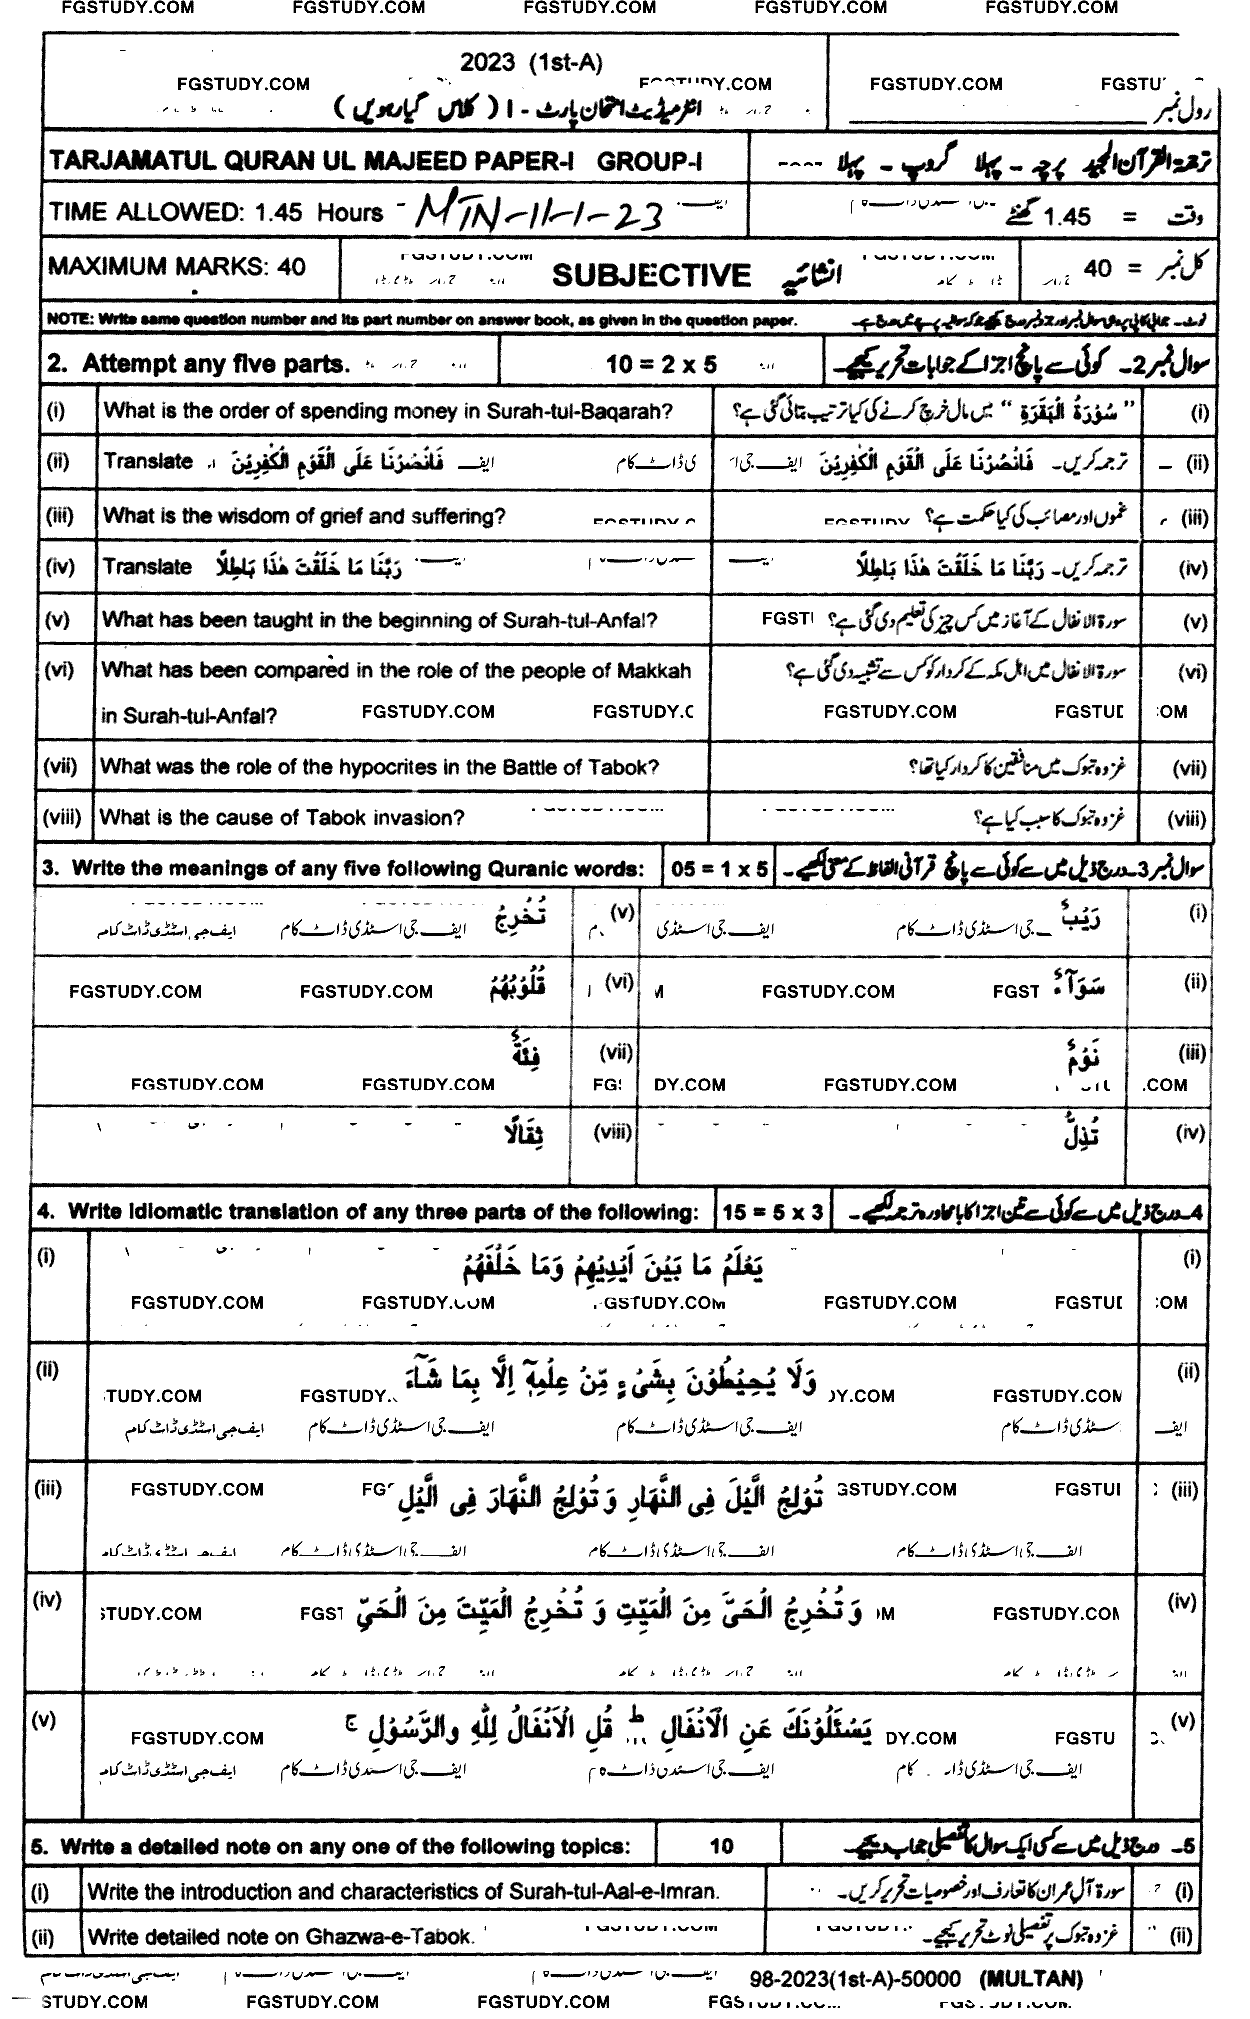 FGSTUDY.COM FGSTUDY.COM FGSTUDY.COM FGSTUDY.COM FGSTUDY.COM
2023 (1st-A)
FGSTUDY.COM FGSTUDY.COM FGSTUDY.COM
انٹرمیڈیٹ امتحان پارٹ - I ( کلاس گیارہویں )
رول نمبر
TARJAMATUL QURAN UL MAJEED PAPER-I GROUP-I
ترجمۃ القرآن المجید پرچہ - پہلا گروپ - پہلا
TIME ALLOWED: 1.45 Hours - MTN-11-1-23
وقت = 1.45 گھنٹے
MAXIMUM MARKS: 40
SUBJECTIVE انشائیہ
کل نمبر = 40
NOTE: Write same question number and its part number on answer book, as given in the question paper.
2. Attempt any five parts. 10 = 2 x 5 سوال نمبر 2۔ کوئی سے پانچ اجزا کے جوابات تحریر کیجیے۔
(i) What is the order of spending money in Surah-tul-Baqarah? "سُوْرَةُ الْبَقَرَةِ" میں مال خرچ کرنے کی کیا ترتیب بتائی گئی ہے؟ (i)
(ii) Translate فَانْصُرْنَا عَلَى الْقَوْمِ الْكٰفِرِيْنَ ترجمہ کریں۔ فَانْصُرْنَا عَلَى الْقَوْمِ الْكٰفِرِيْنَ (ii)
(iii) What is the wisdom of grief and suffering? غموں اور مصائب کی کیا حکمت ہے؟ (iii)
(iv) Translate رَبَّنَا مَا خَلَقْتَ هٰذَا بَاطِلًا ترجمہ کریں۔ رَبَّنَا مَا خَلَقْتَ هٰذَا بَاطِلًا (iv)
(v) What has been taught in the beginning of Surah-tul-Anfal? سورۃ الانفال کے آغاز میں کس چیز کی تعلیم دی گئی ہے؟ (v)
(vi) What has been compared in the role of the people of Makkah سورۃ الانفال میں اہل مکہ کے کردار کو کس سے تشبیہ دی گئی ہے؟ (vi)
in Surah-tul-Anfal? FGSTUDY.COM FGSTUDY.COM
(vii) What was the role of the hypocrites in the Battle of Tabok? غزوہ تبوک میں منافقین کا کردار کیا تھا؟ (vii)
(viii) What is the cause of Tabok invasion? غزوہ تبوک کا سبب کیا ہے؟ (viii)
3. Write the meanings of any five following Quranic words: 05 = 1 x 5 سوال نمبر 3۔ درج ذیل میں سے کوئی سے پانچ قرآنی الفاظ کے معنی لکھیے۔
تُخْرِجُ (v) رَيْبٌ (i)
ایف جی اسٹڈی ڈاٹ کام ایف جی اسٹڈی ڈاٹ کام
قُلُوْبُهُمْ (vi) سَوَآءٌ (ii)
FGSTUDY.COM FGSTUDY.COM FGSTUDY.COM
فِئَةٌ (vii) نَوْمٌ (iii)
FGSTUDY.COM FGSTUDY.COM FGSTUDY.COM
ثِقَالًا (viii) تُذِلُّ (iv)
4. Write idiomatic translation of any three parts of the following: 15 = 5 x 3 4۔ درج ذیل میں سے کوئی سے تین اجزا کا بامحاورہ ترجمہ لکھیے۔
(i) يَعْلَمُ مَا بَيْنَ اَيْدِيْهِمْ وَمَا خَلْفَهُمْ (i)
FGSTUDY.COM FGSTUDY.COM FGSTUDY.COM FGSTUDY.COM
(ii) وَلَا يُحِيْطُوْنَ بِشَيْءٍ مِّنْ عِلْمِهٖٓ اِلَّا بِمَا شَآءَ (ii)
FGSTUDY.COM
ایف جی اسٹڈی ڈاٹ کام ایف جی اسٹڈی ڈاٹ کام ایف جی اسٹڈی ڈاٹ کام
(iii) تُوْلِجُ الَّيْلَ فِى النَّهَارِ وَ تُوْلِجُ النَّهَارَ فِى الَّيْلِ (iii)
FGSTUDY.COM
ایف جی اسٹڈی ڈاٹ کام ایف جی اسٹڈی ڈاٹ کام ایف جی اسٹڈی ڈاٹ کام
(iv) وَ تُخْرِجُ الْحَىَّ مِنَ الْمَيِّتِ وَ تُخْرِجُ الْمَيِّتَ مِنَ الْحَىِّ (iv)
(v) يَسْئَلُوْنَكَ عَنِ الْاَنْفَالِ ط قُلِ الْاَنْفَالُ لِلّٰهِ والرَّسُوْلِ ج (v)
FGSTUDY.COM
ایف جی اسٹڈی ڈاٹ کام ایف جی اسٹڈی ڈاٹ کام
5. Write a detailed note on any one of the following topics: 10 5۔ درج ذیل میں سے کسی ایک سوال کا تفصیلی جواب دیجیے۔
(i) Write the introduction and characteristics of Surah-tul-Aal-e-Imran. سورۃ آل عمران کا تعارف اور خصوصیات تحریر کریں۔ (i)
(ii) Write detailed note on Ghazwa-e-Tabok. غزوہ تبوک پر تفصیلی نوٹ تحریر کیجیے۔ (ii)
98-2023(1st-A)-50000 (MULTAN)
STUDY.COM FGSTUDY.COM FGSTUDY.COM